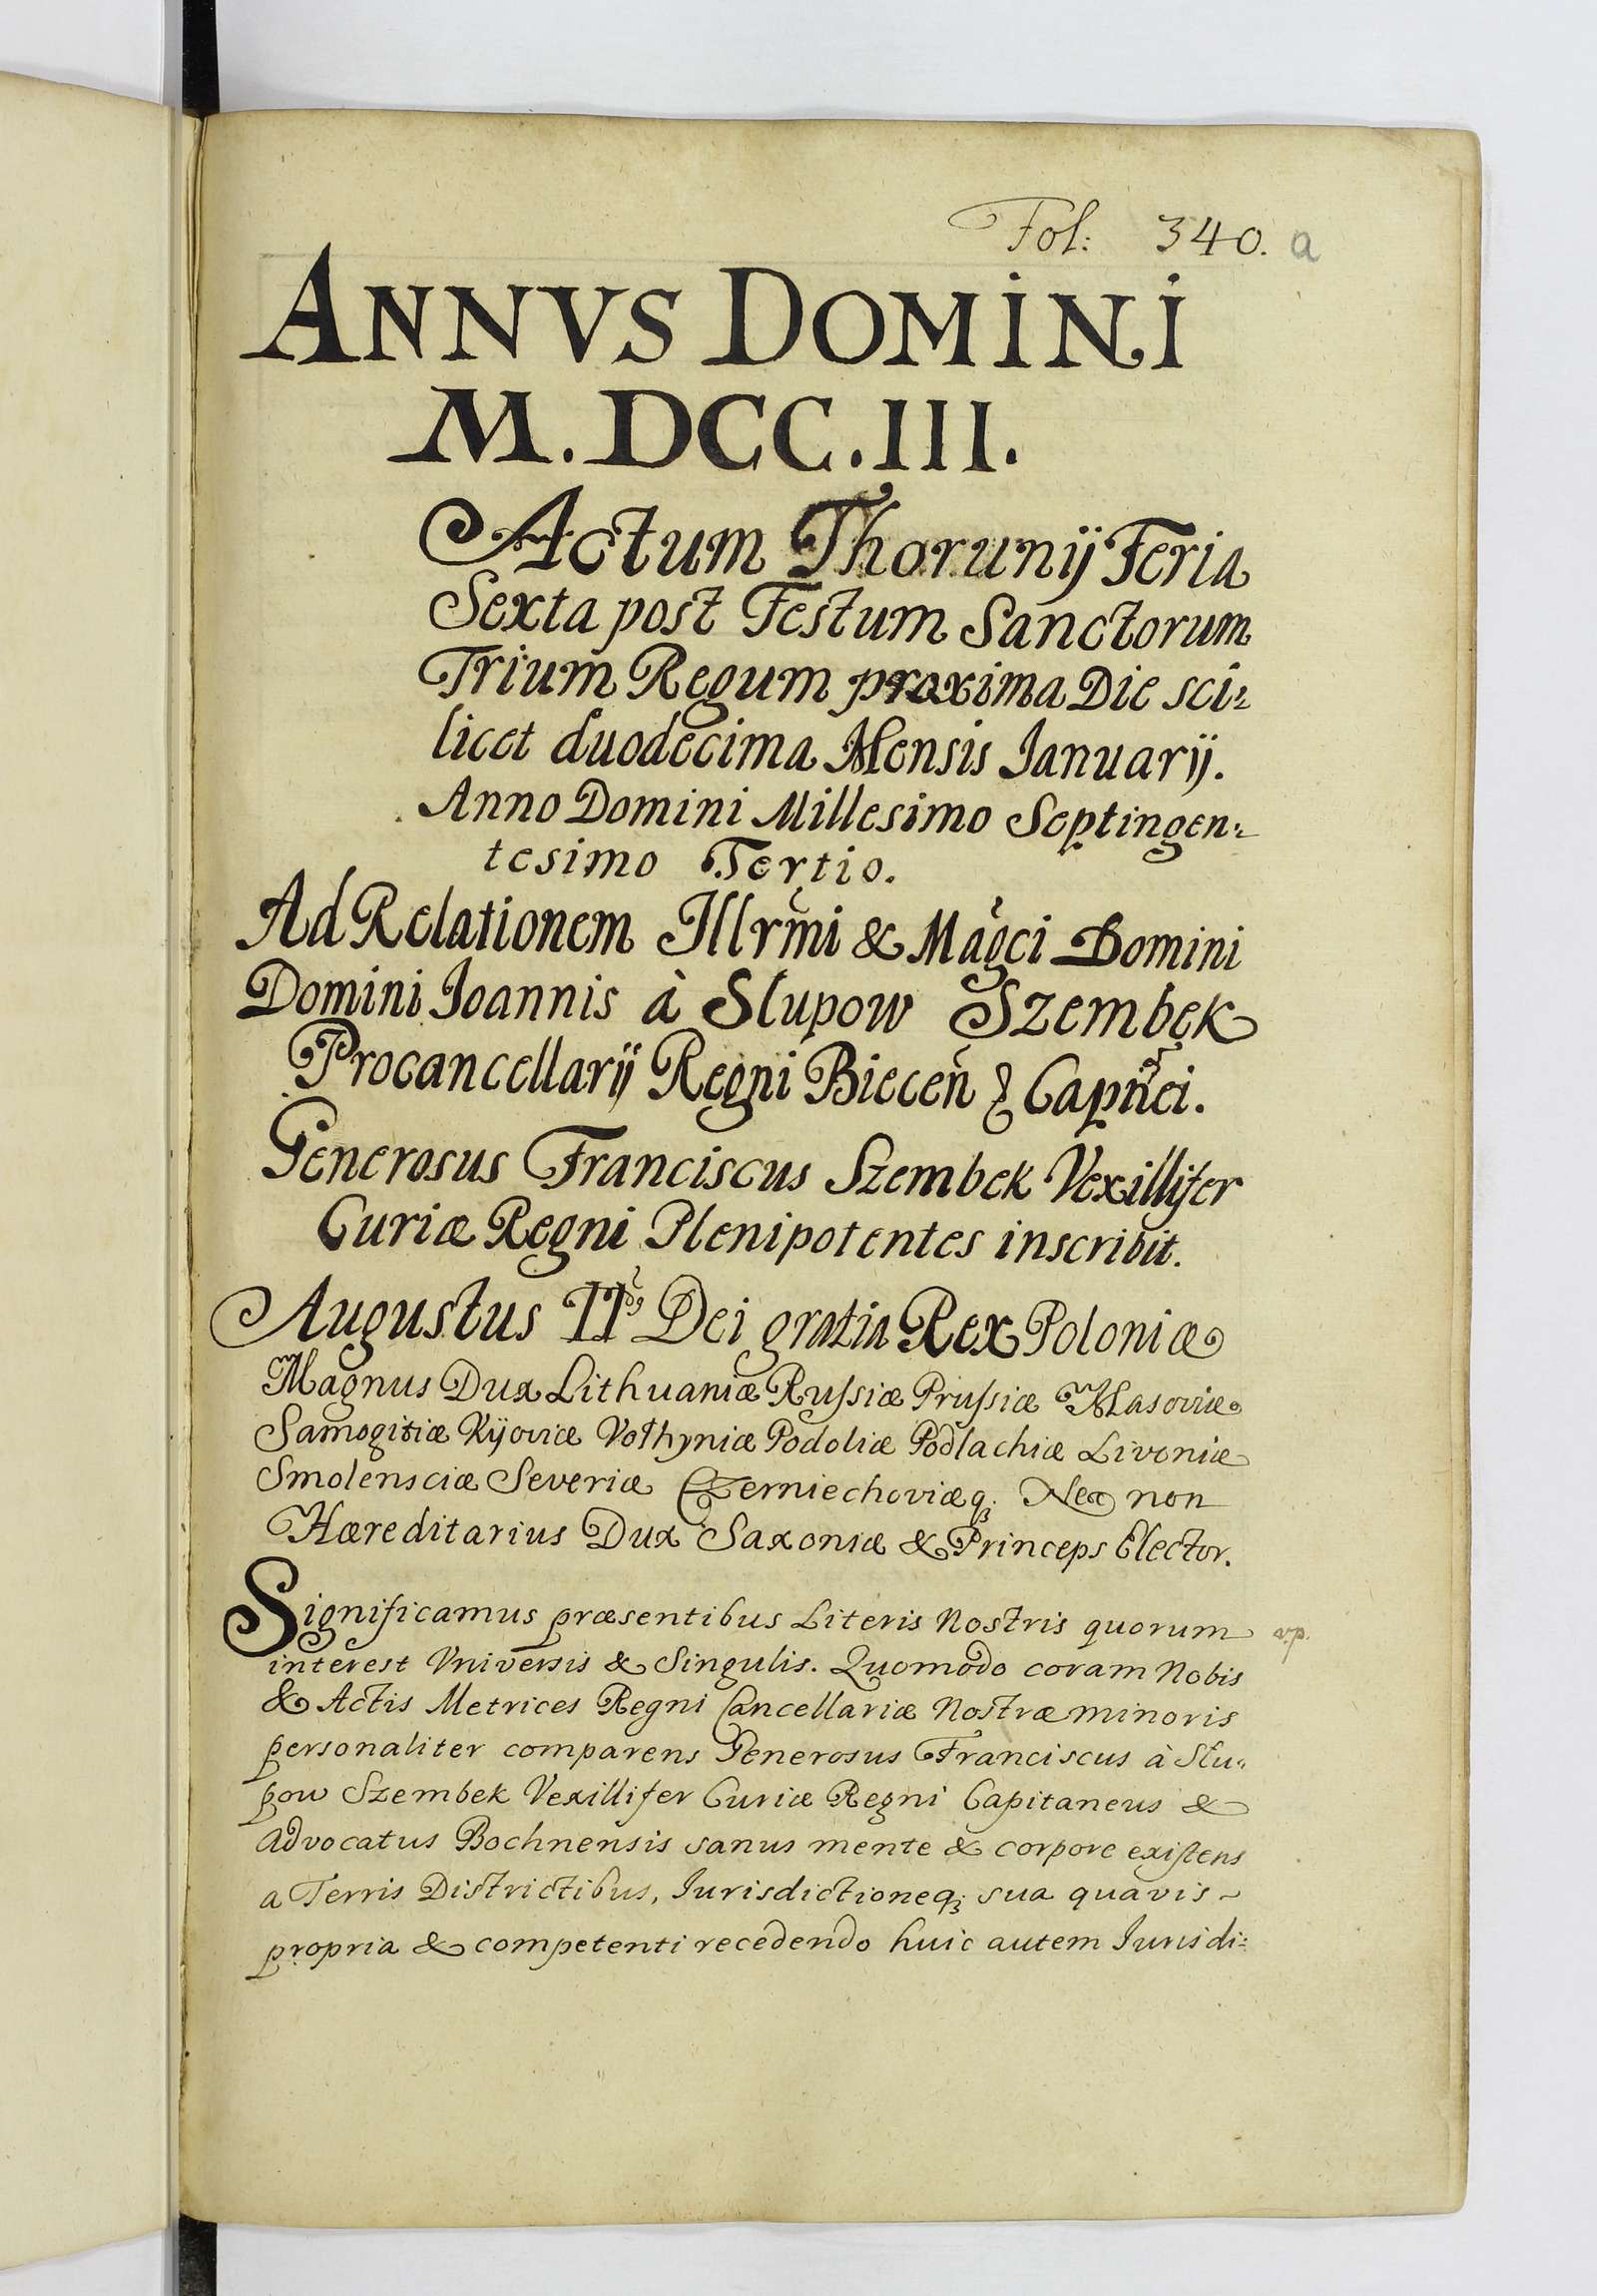 Fol: 340. a
ANNVS DOMINI
M.DCC.III.
Actum Thorunij Feria
Sexta post Festum Sanctorum
Trium Regum proxima Die sci=
licet duodecima Mensis Ianuarij.
Anno Domini Millesimo Septingen=
tesimo Tertio.
Ad Relationem Illrmi & Magci Domini
Domini Ioannis à Slupow Szembek
Procancellarij Regni Biecen & Capnci.
Generosus Franciscus Szembek Vexillifer
Curiæ Regni Plenipotentes inscribit.
Augustus IIdus Dei gratia Rex Poloniæ
Magnus Dux Lithuaniæ Russiæ Prussiæ Masoviæ
Samogitiæ Kijoviæ Volhyniæ Podoliæ Podlachiæ Livoniæ
Smolensciæ Severiæ Czerniechoviæq; Nec non
Hæreditarius Dux Saxoniæ & Princeps Elector.
Significamus præsentibus Literis Nostris quorum vp.
interest Vniversis & Singulis. Quomodo coram Nobis
& Actis Metrices Regni Cancellariæ Nostræ minoris
personaliter comparens Generosus Franciscus à Slu=
pow Szembek Vexillifer Curiæ Regni Capitaneus &
Advocatus Bochnensis sanus mente & corpore existens
a Terris Districtibus, Iurisdictioneq; sua quavis ~
propria & competenti recedendo huic autem Iurisdi=